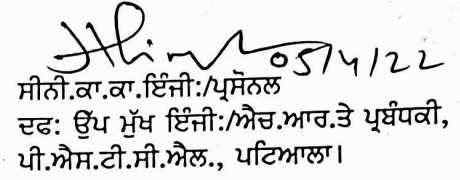 05/4/22
ਸੀਨੀ.ਕਾ.ਕਾ.ਇੰਜੀ:/ਪ੍ਰਸੋਨਲ
ਦਫ: ਉੱਪ ਮੁੱਖ ਇੰਜੀ:/ਐਚ.ਆਰ.ਤੇ ਪ੍ਰਬੰਧਕੀ,
ਪੀ.ਐਸ.ਟੀ.ਸੀ.ਐਲ., ਪਟਿਆਲਾ।